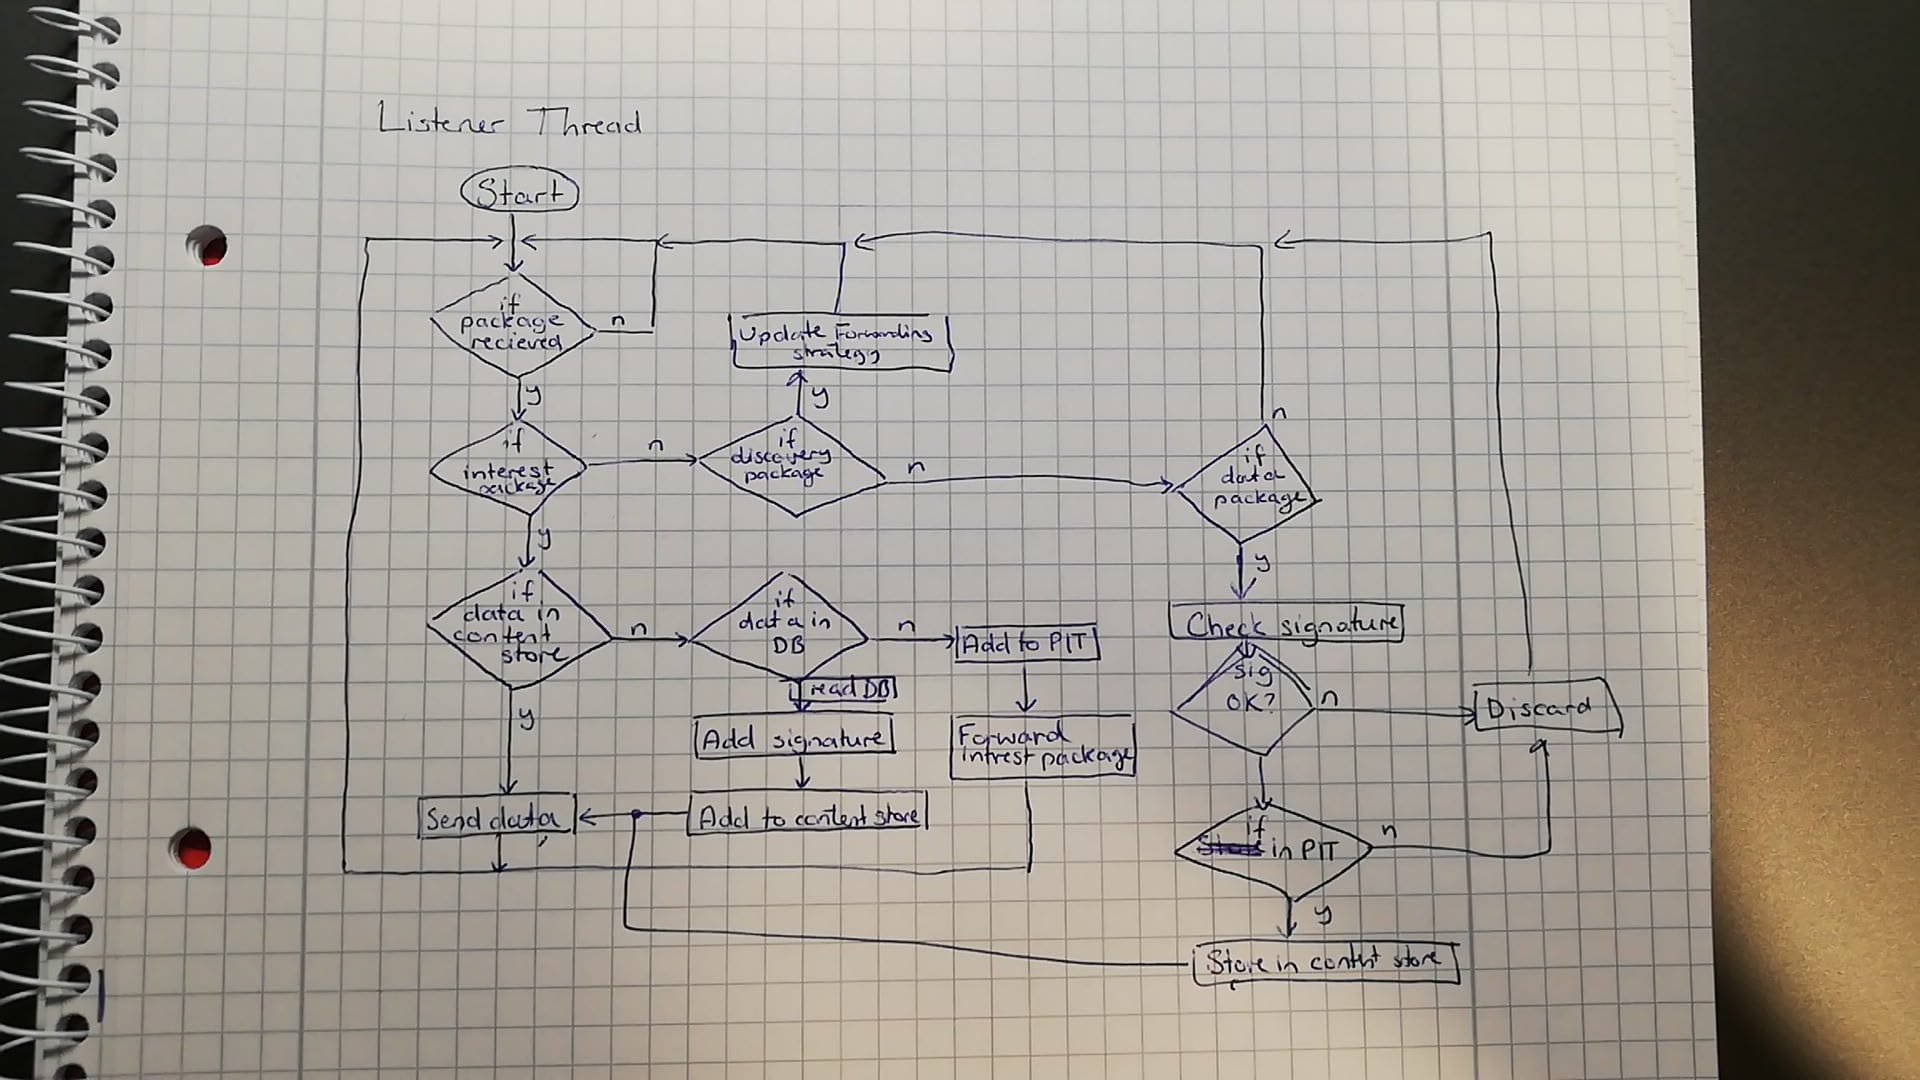 Listener Thread
Start
if
package
recieved
n
y
Update Forwarding
strategy
y
if
interest
package
n
if
discovery
package
n
n
if
data
package
y
y
if
data in
content
store
n
if
data in
DB
n
Add to PIT
Check signature
read DB
sig
OK?
n
Discard
y
Add signature
Forward
intrest package
Send data
Add to content store
if
in PIT
n
y
Store in content store